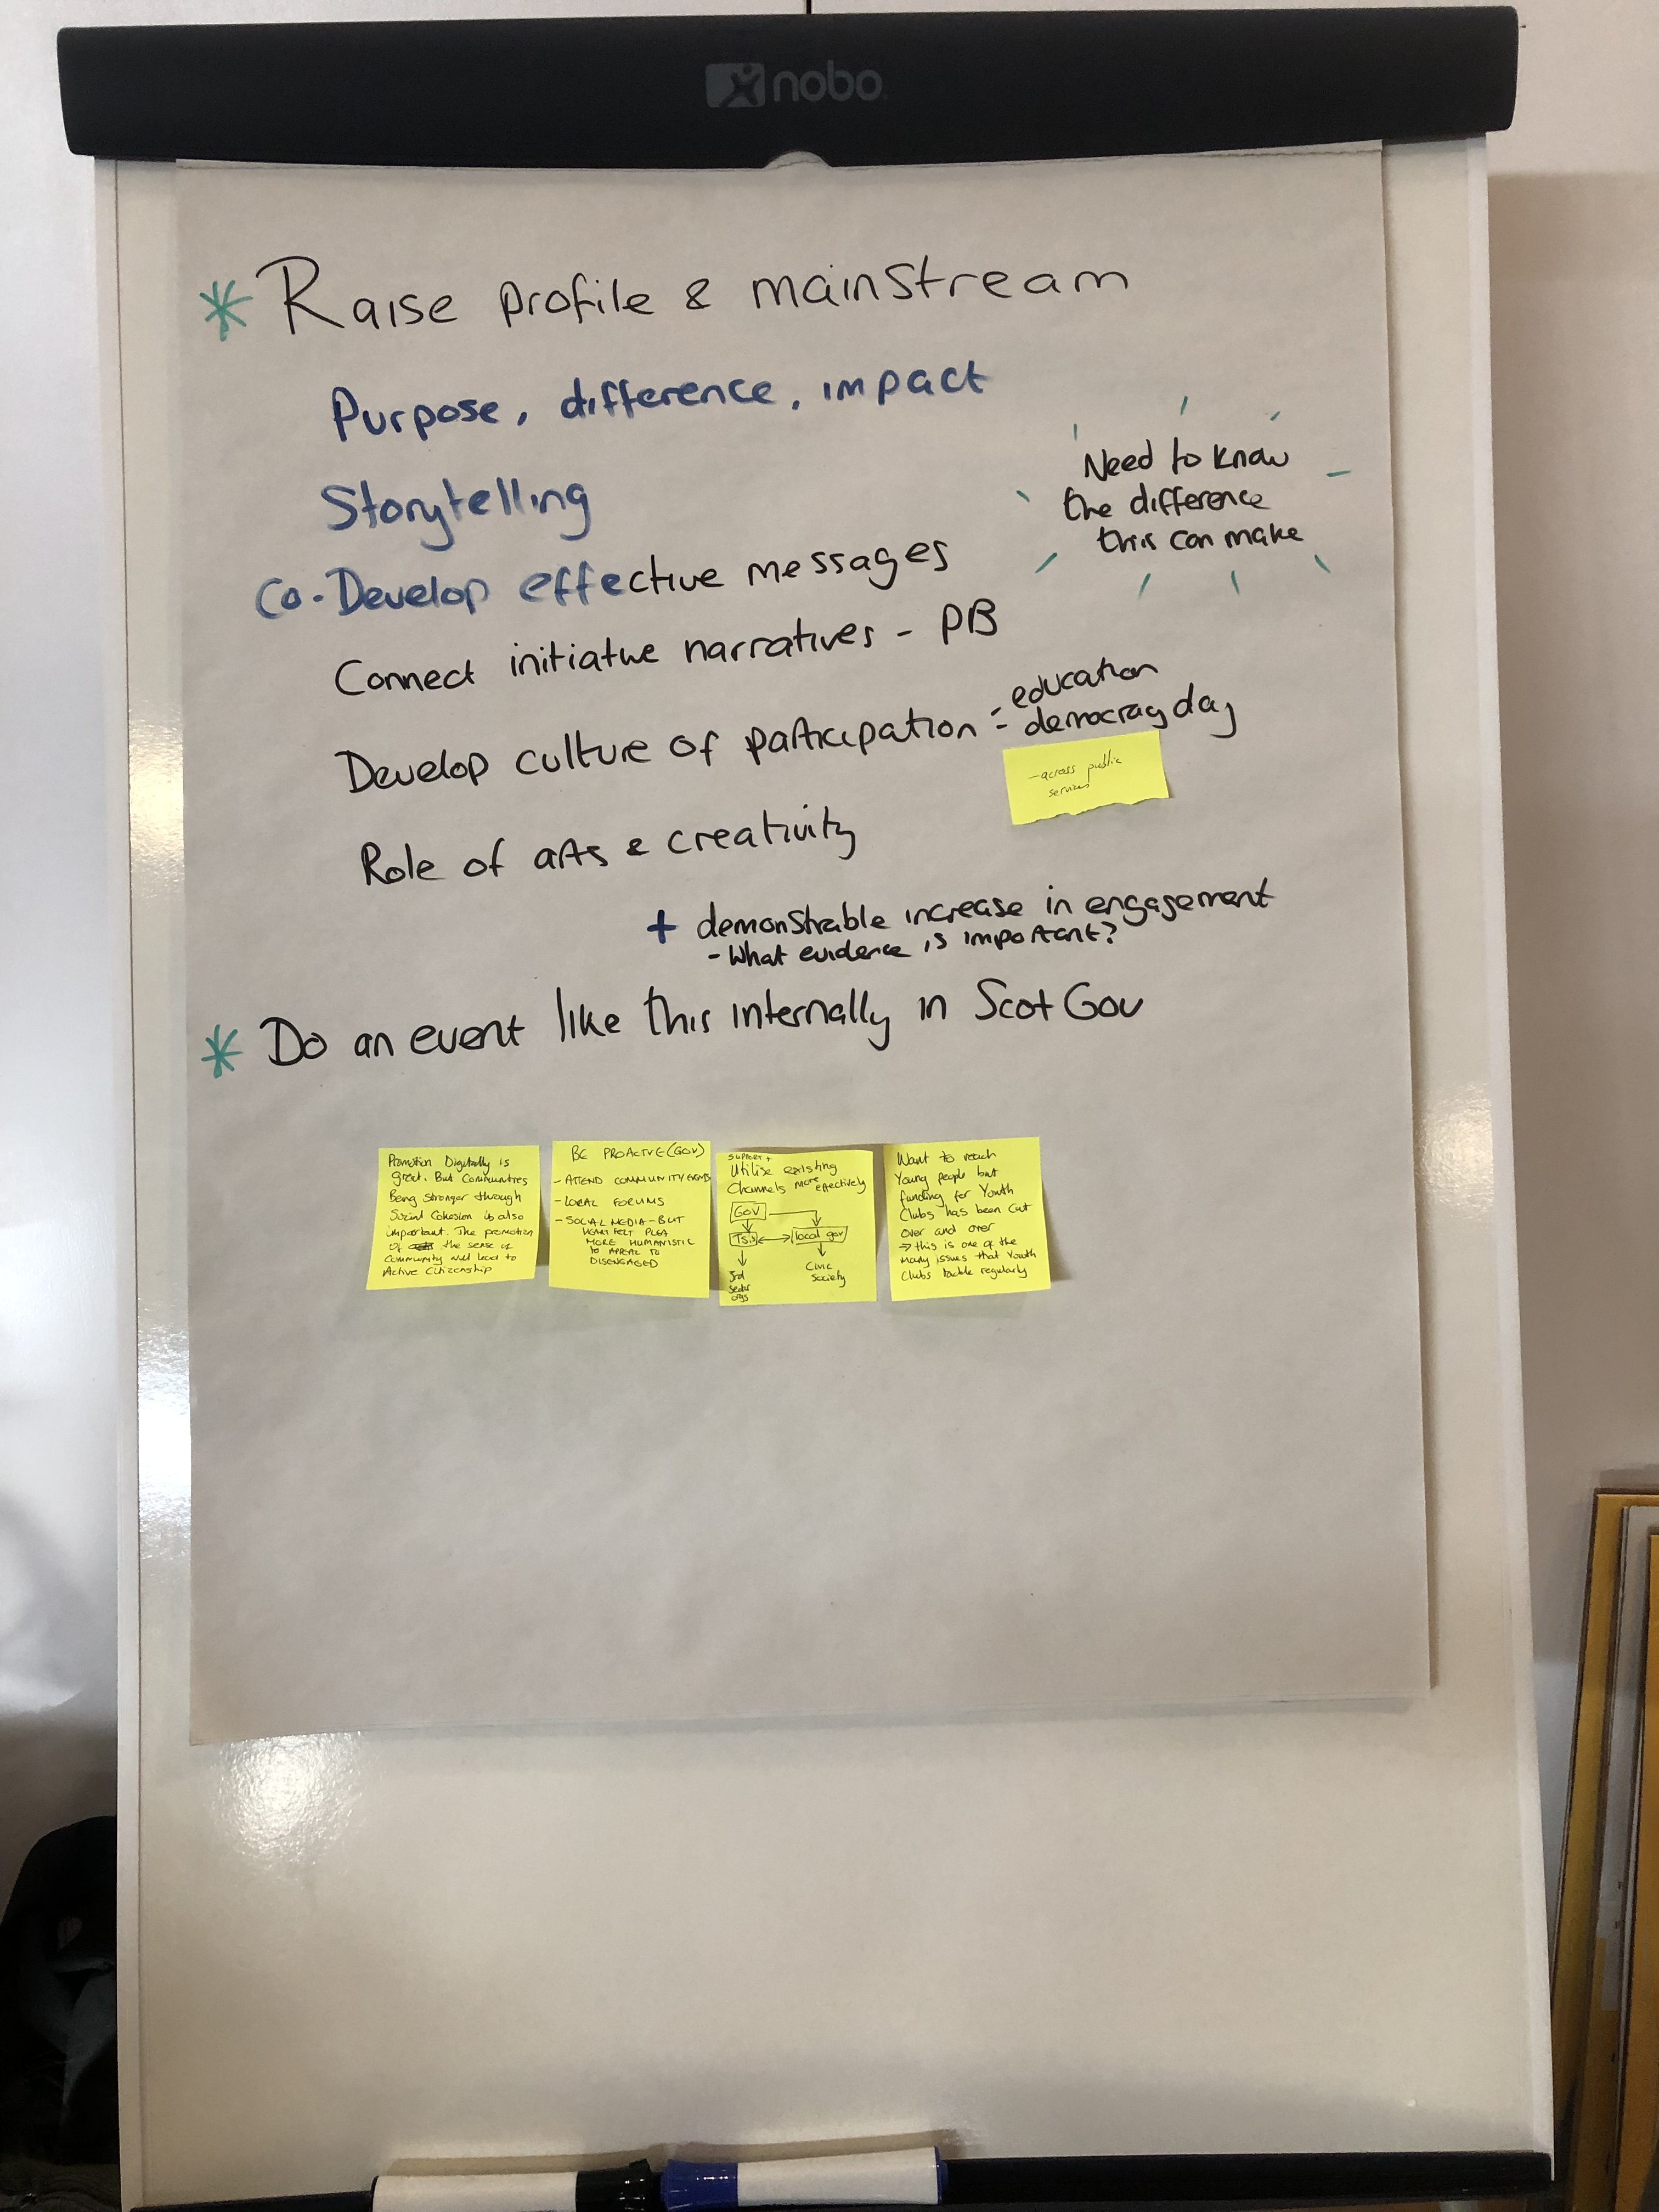 nobo
* Raise profile & mainstream
Purpose, difference, impact
Need to know
the difference
this can make
Storytelling
Co-Develop effective messages
Connect initiative narratives - PB
Develop culture of participation - education
- democracy day
- across public
services
Role of arts & creativity
+ demonstrable increase in engagement
- What evidence is important?
* Do an event like this internally in Scot Gov
Promotion Digitally is
great. But Communities
Being stronger through
Social Cohesion is also
important. The promotion
of the sense of
Community will lead to
Active Citizenship
BE PROACTIVE (GOV)
- ATTEND COMMUNITY
- LOCAL FORUMS
- SOCIAL MEDIA - BUT
HEART FELT PLEA
MORE HUMANISTIC
TO APPEAL TO
DISENGAGED
SUPPORT +
Utilise existing
Channels more effectively
GOV
TSIs local gov
3rd
sector
orgs
Civic
Society
Want to reach
Young people but
funding for Youth
Clubs has been cut
over and over
→ this is one of the
many issues that Youth
Clubs tackle regularly